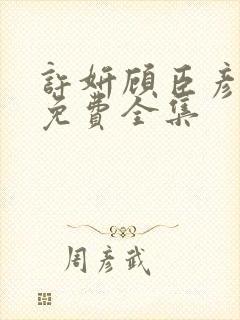 許妍顧臣彥
免費全集
周彥武